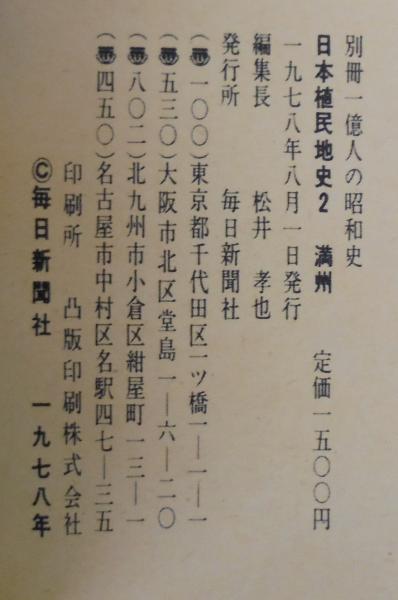 別冊一億人の昭和史
日本植民地史2 満州 定価一五〇〇円
一九七八年八月一日発行
編集長 松井 孝也
発行所 毎日新聞社
(〠一〇〇)東京都千代田区一ツ橋一―一―一
(〠五三〇)大阪市北区堂島一―六―二〇
(〠八〇二)北九州市小倉区紺屋町一三―一
(〠四五〇)名古屋市中村区名駅四七―三五
印刷所 凸版印刷株式会社
©毎日新聞社 一九七八年